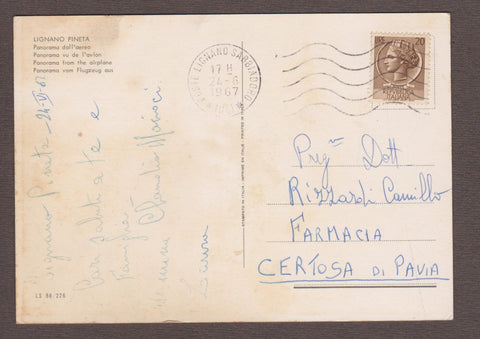 LIGNANO PINETA
Panorama dall'aereo
Panorama vu de l'avion
Panorama from the airplane
Panorama vom Flugzeug aus
Lignano Pineta - 24-VI-67
Cari saluti a te e
famiglia
Claudio
LS 86 226
STAMPATO IN ITALIA - IMPRIMÉ EN ITALIE - PRINTED IN ITALY
LIGNANO SABBIADORO
17 H
24-6
1967
20
Preg. Dott
Rizzardi Camillo
FARMACIA
CERTOSA DI PAVIA